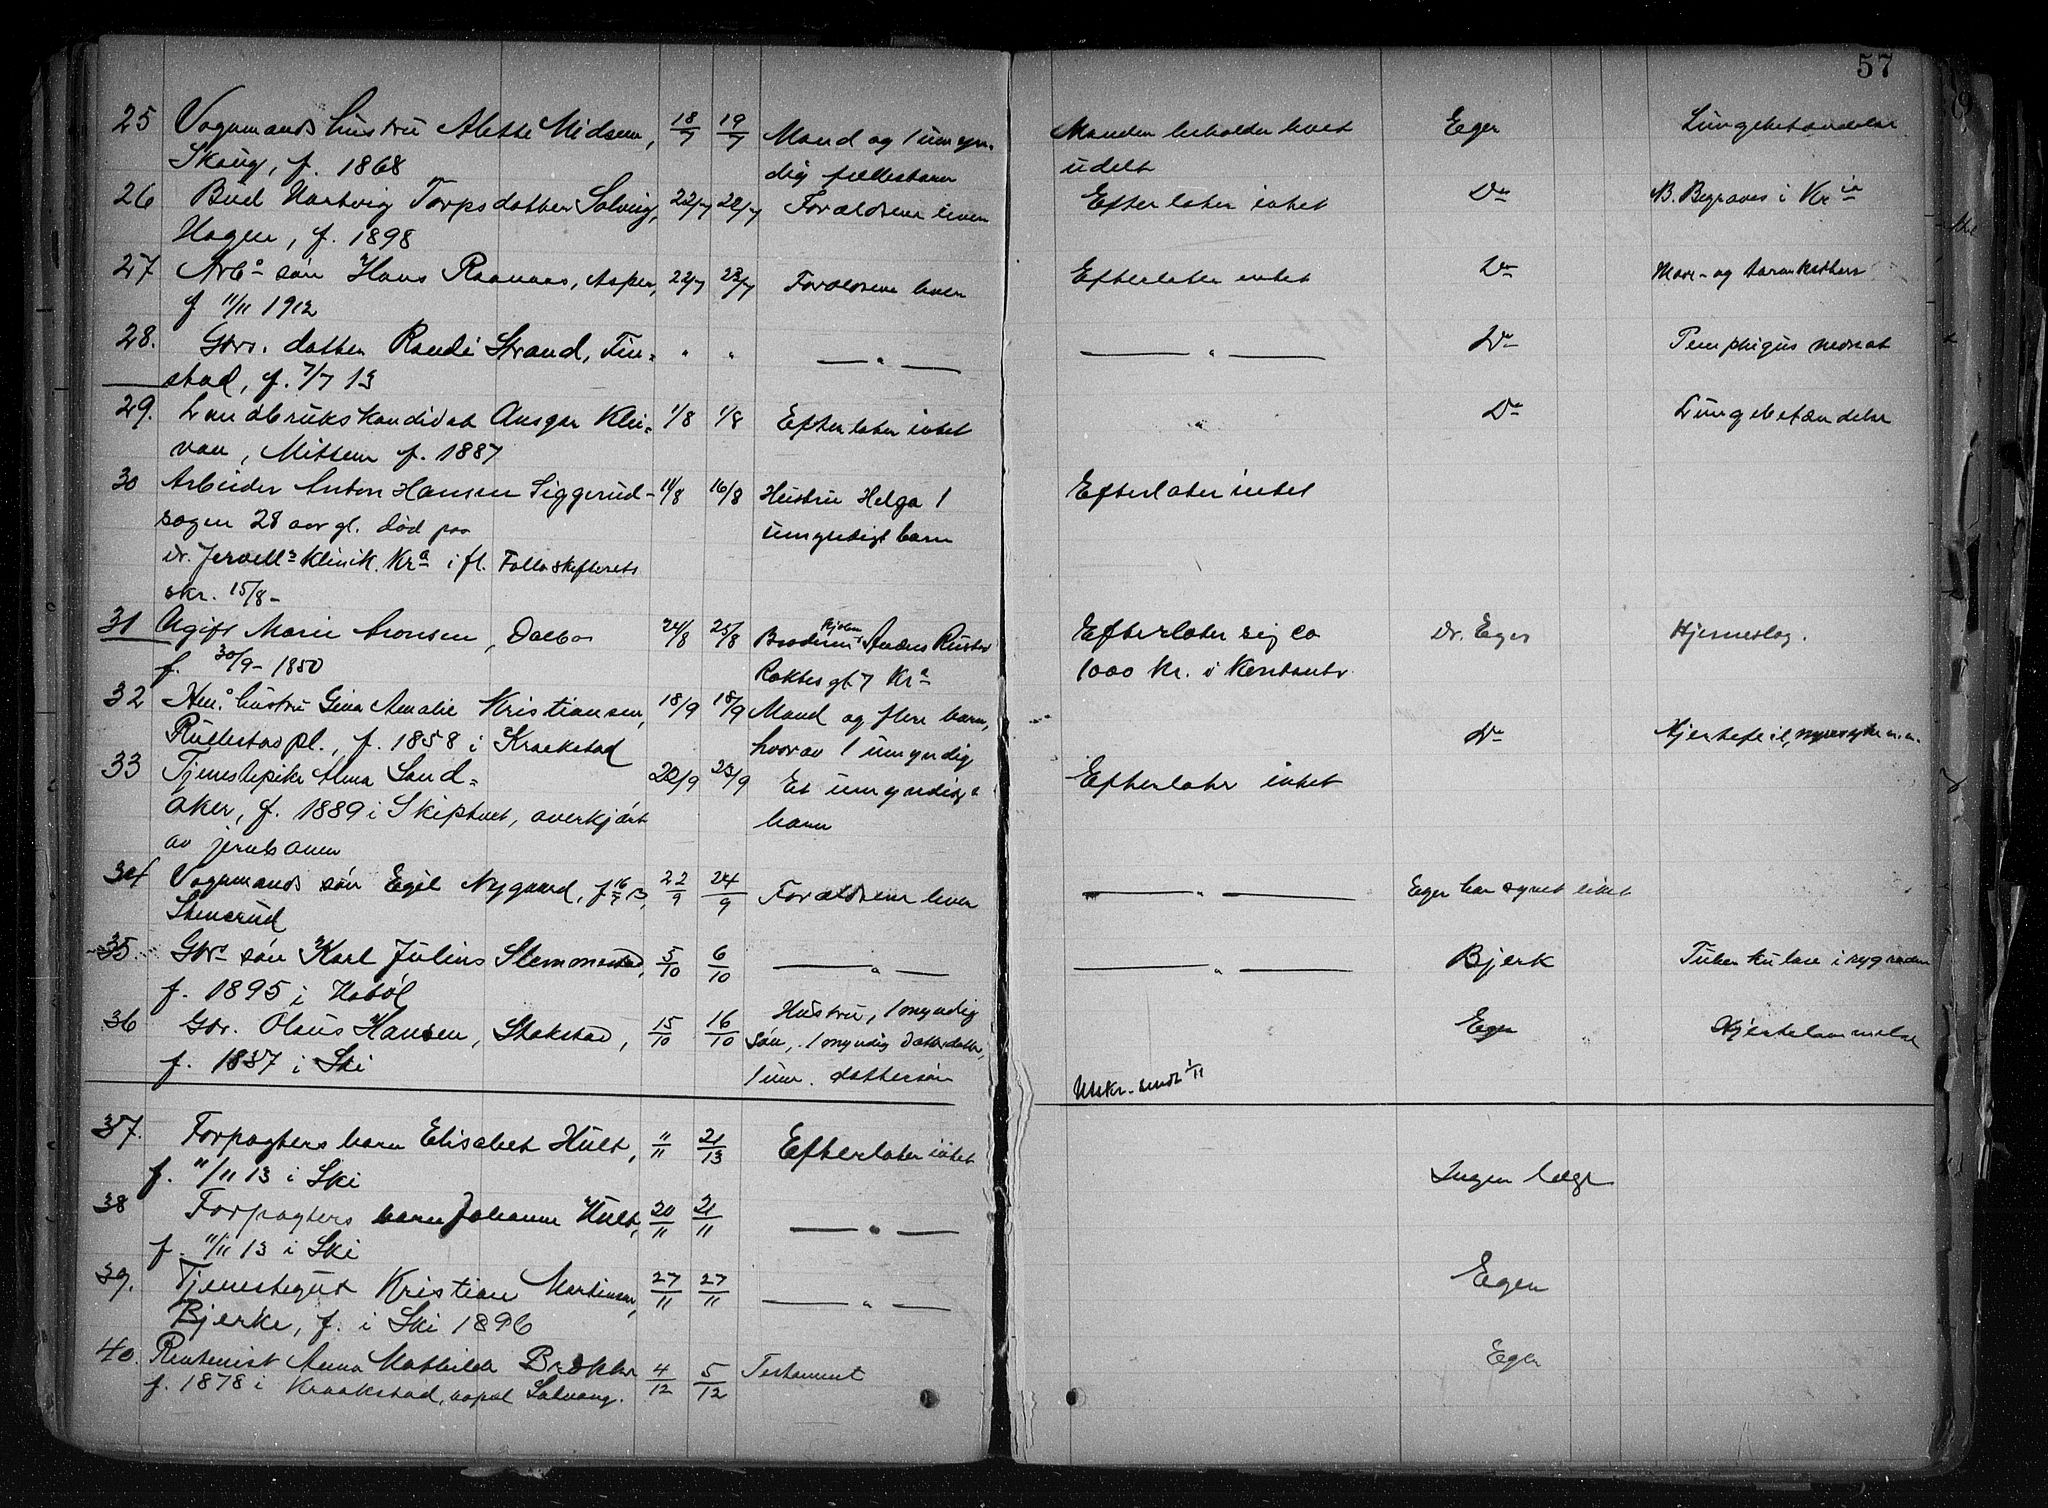 57
25 Vognmands hustru Alette Midsem, 18/7 19/7 Mand og 1 umyn- Manden beholder boet Eger Lungebetændelse
Skoug, f. 1868 dig fællesbarn udelt
26 Hartvig Torps datter Solveig, 22/7 22/7 Forældrene lever Efterlater intet Do B. Begraves i Kr.ia
Hagen, f. 1898
27. Arb. søn Hans Raanaas, Asper, 22/7 23/7 Forældrene lever Efterlater intet Do Mave- og tarmkatharr
f 11/11 1912
28. Grs. datter Randi Strand, Fin- " " — " — — " — Do Pemphigus neonat
stad, f. 7/7 13
29. Landbrukskandidat Ansgar Klei- 1/8 1/8 Efterlater intet " Do Lungebetændelse
van, Mitsem f. 1887
30 Arbeider Anton Hansen Siggerud- 14/8 16/8 Hustru Helga 1 Efterlater intet
sagen 28 aar gl. død paa umyndigt barn
Dr. Jervells Klinik Kra i fl. Follo skifterets
skr. 15/8 -
31 Ugift Marie Aronsen, Dalbo 24/8 25/8 Broderen Anders Efterlater sig ca Dr. Eger Hjerneslag.
f. 30/9 - 1850 gt. 7 Kra 1000 kr. i Kontanter
32 Hm. hustru Gina Amalie Kristiansen, 18/9 18/9 Mand og flere barn, Do Hjertefeil, nyresyke m.m.
Rullestad pl., f. 1858 i Kraakstad hvorav 1 umyndig
33 Tjenestepike Alma Sand- 22/9 23/9 Et umyndig Efterlater intet
aker, f. 1889 i Skiptvet, overkjørt barn
av jernbanen
34 Vognmands søn Egil Nygaard, f 16/7 13, 22/9 24/9 Forældrene lever — " — Eger har synet liket
Stensrud
35. Grs søn Karl Julius Slemmestad, 5/10 6/10 — " — — " — Bjerk Tuberkulose i rygraden
f. 1895 i Hobøl
36 Gbr. Olaus Hansen, Stokstad, 15/10 16/10 Hustru, 1 myndig " Eger Hjertelammelse
f. 1837 i Ski Søn, 1 myndig datterdatter,
1 um. dattersøn Utskr. sendt 1/11
37. Forpagters barn Elisabet Hult, 11/11 21/13 Efterlater intet Ingen læge
f. 11/11 13 i Ski
38 Forpagters barn Johanne Hult, 20/11 21/11 — " —
f. 11/11 13 i Ski
39. Tjenestegut Kristian Martinsen, 27/11 27/11 — " — Eger
Bjerke, f. i Ski 1896
40. Rentenist Anna Mathilde Brekke 4/12 5/12 Testament Eger
f. 1878 i Kraakstad, Solvang.